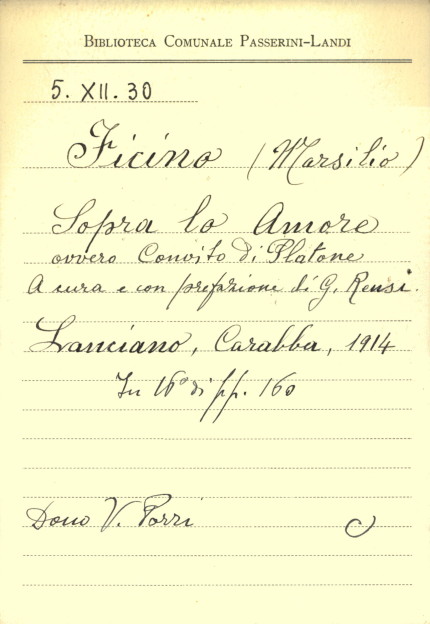 BIBLIOTECA COMUNALE PASSERINI-LANDI
5. XII. 30
Ficino (Marsilio)
Sopra lo Amore
ovvero Convito di Platone
A cura e con prefazione di G. Rensi.
Lanciano, Carabba, 1914
In 16° di pp. 160
Dono V. Porri